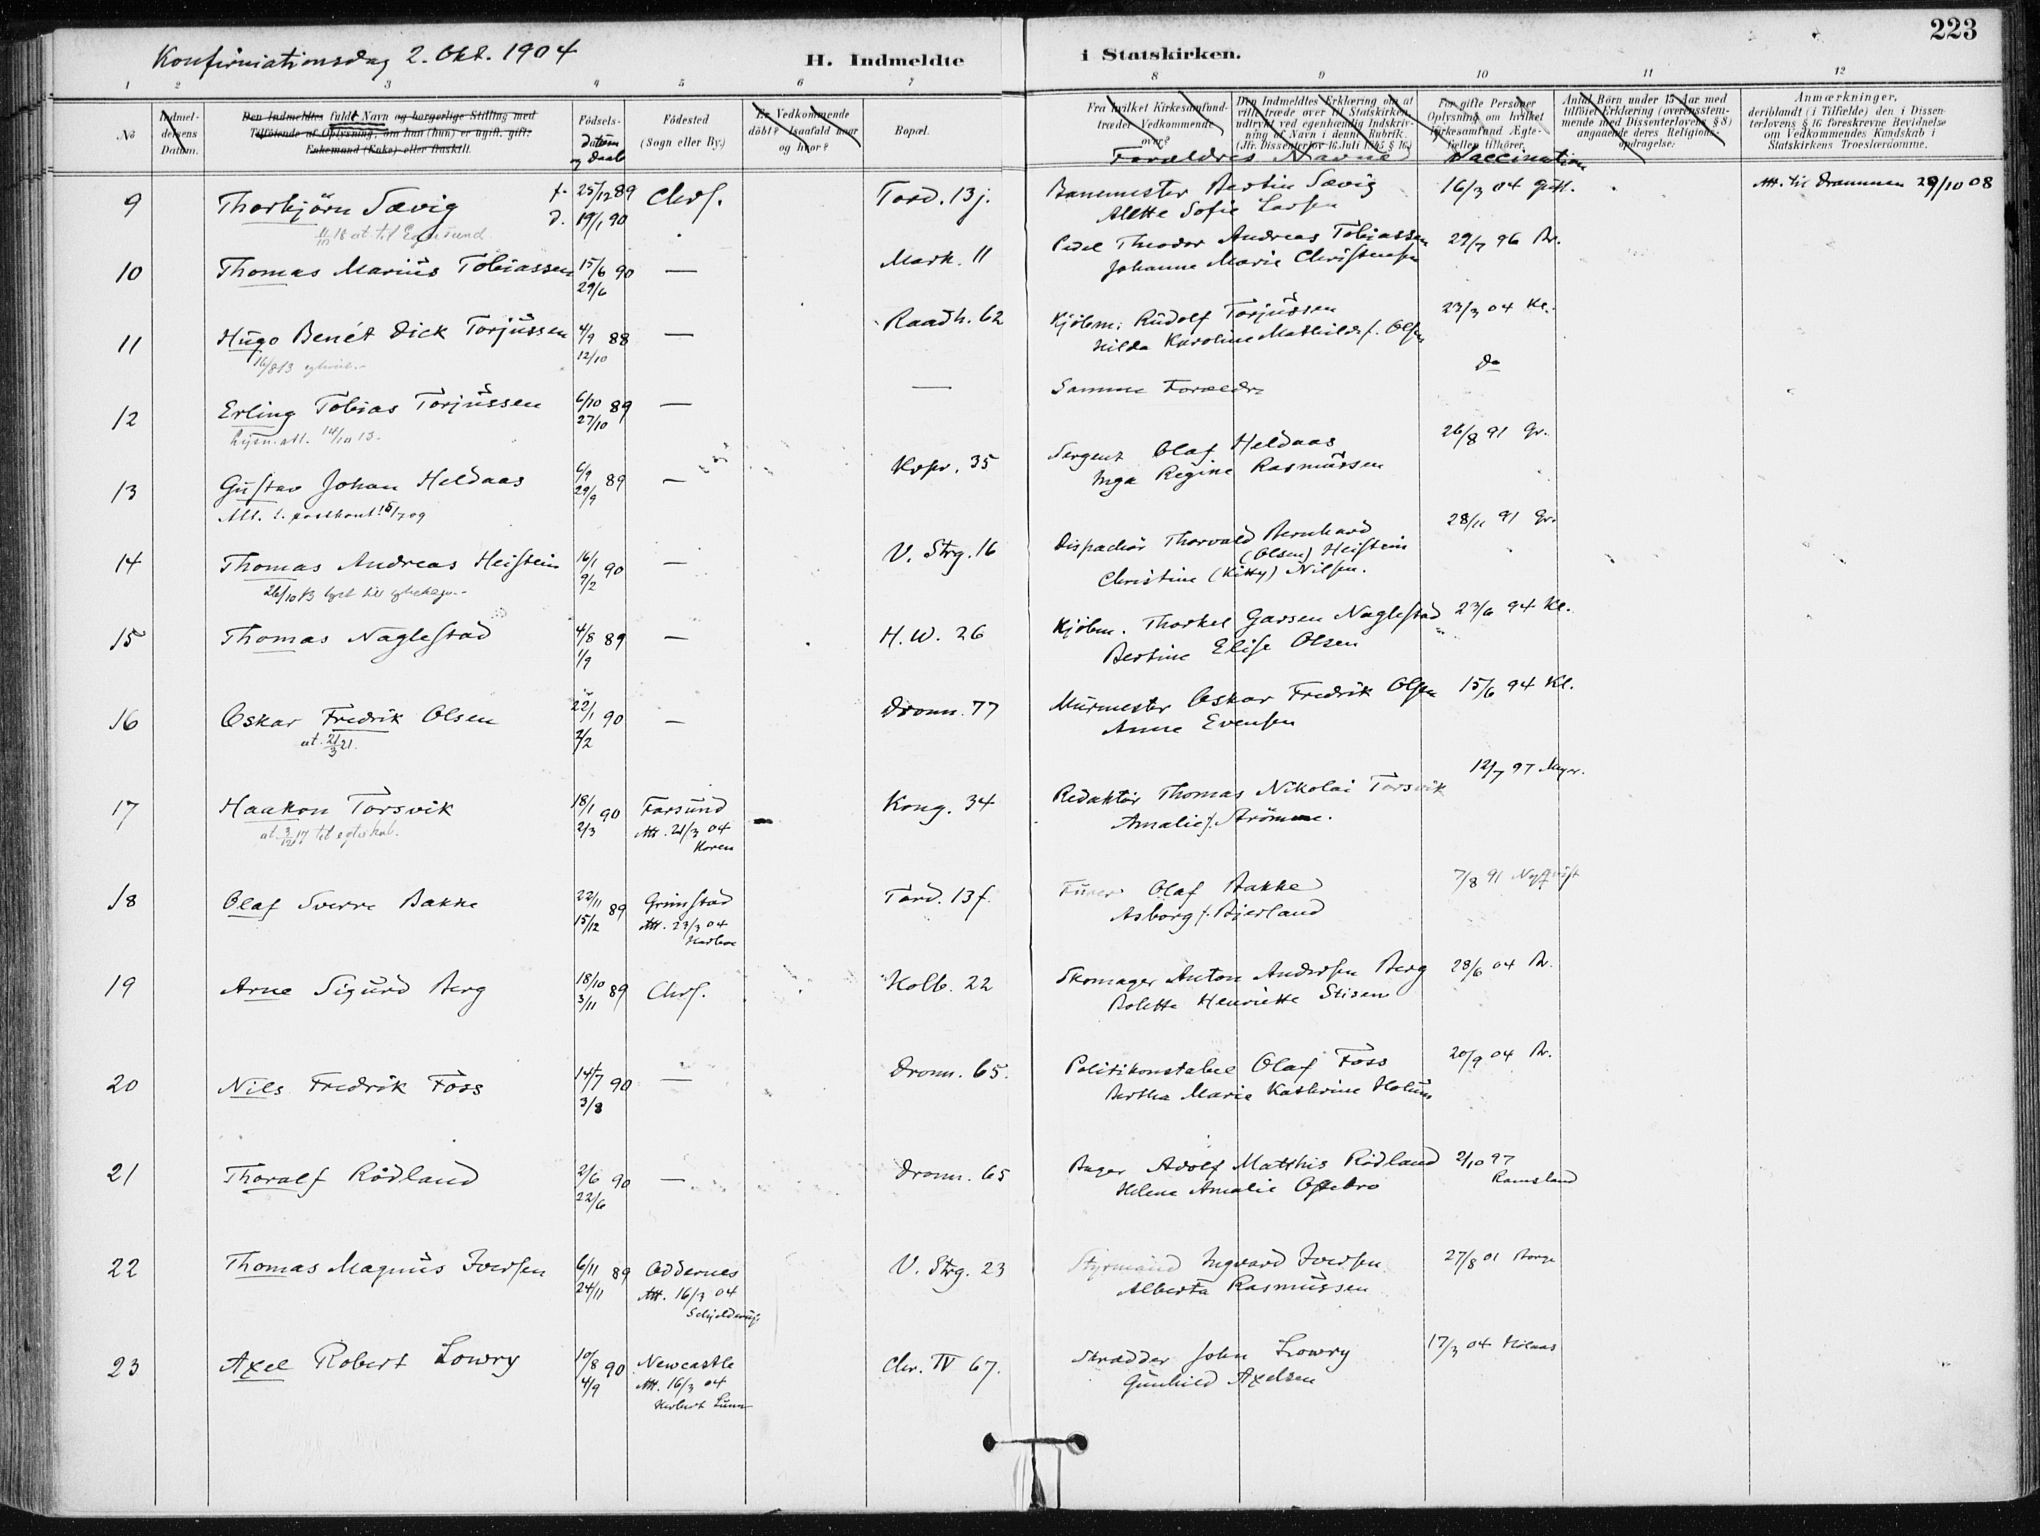 223
Konfirmationsdag 2. Okt. 1904
H. Indmeldte i Statskirken.
1 2 3 4 5 6 7 8 9 10 11 12
No
Indmeldelsens Datum.
Den Indmeldtes fulde Navn og borgerlige Stilling med
Tilföiende af Oplysning, om han (hun) er ugift, gift,
Enkemand (Enke) eller fraskilt.
Födsels-
datum og Daab
Födested
(Sogn eller By.)
Er Vedkommende
döbt? Isaafald naar
og hvor?
Bopæl.
Fra hvilket Kirkesamfund
træder Vedkommende
over?
Den Indmeldtes Erklæring om at
ville træde over til Statskirken
udtrykt ved egenhændig Indskrivning
af Navn i denne Rubrik.
(Jfr. Dissenterlov 16 Juli 1845 § 16.)
Forældres Navne
For gifte Personer
Oplysning om hvilket
Kirkesamfund Ægtefellen
tilhörer.
Vaccination
Antal Börn under 15 Aar med
tilföiet Erklæring (overensstemmende
med Dissenterlovens § 8)
angaaende deres Religionsopdragelse:
Anmærkninger,
deriblandt (i Tilfælde) den i Dissenterlovens
§ 16 foreskrevne Bevidnelse
om Vedkommendes Kundskab i
Statskirkens Troeslærdomme.
9 Thorbjörn Sævig f. 25/12 89 Chrs. Tord. 13 j. Banemester Bertin Sævig 16/3 04 Att. til Drammen 29/10 08
d. 19/1 90 Alette Sofie Larsen
10 Thomas Marius Tobiassen 15/6 90 — Mark. 11 Theodor Andreas Tobiassen 29/7 96 Br.
29/6 Johanne Marie Christensen
11 Hugo Benét Dick Torjussen 4/9 88 — Raadh. 62 Kjöbm. Rudolf Torjussen 23/3 04 Kl.
12/10 Hilda Karoline Mathilde f. Olsen
16/8 13
12 Erling Tobias Torjussen 6/10 89 — — Samme Forældre do
27/10
14/10 13.
13 Gustav Johan Heldaas 6/9 89 — 35 Sergent Olaf Heldaas 26/8 91 Gr.
29/9 Inga Regine Rasmussen
14 Thomas Andreas Heistein 16/1 90 — V. Strg. 16 Dispachör Thorvald Bernhard 28/11 91 Gr.
9/2 (Olsen) Heistein
Christine (Kitty) Nilsen.
26/10 13
15 Thomas Naglestad 4/8 89 — H. W. 26 Kjöbm. Thorkel Garsen Naglestad 23/6 94 Kl.
1/9 Bertine Elise Olsen
16 Oskar Fredrik Olsen 22/1 90 — Dronn. 77 Murmester Oskar Fredrik Olsen 15/6 94 Kl.
2/2 Anne Evensen
at. 21/3 21.
17 Haakon Torsvik 18/1 90 Farsund Kong. 34 Redaktör Thomas Nikolai Torsvik 12/7 97
2/3 Att. 21/3 04 Amalie f. Strömme.
Koren
18 Olaf Sverre Bakke 22/11 89 Grimstad Tord. 13 f. Olaf Bakke 7/8 91
15/12 Att. 23/3 04 Asborg f. Bjerland
19 Arne Sigurd Berg 18/10 89 Chrs. Holb. 22 Skomager Anton Andersen Berg 28/6 04 Br.
3/11 Bolette Henriette Stisen
20 Nils Fredrik Foss 14/7 90 — Dronn. 65. Politikonstabel Olaf Foss 20/9 04 Br.
3/8 Bertha Marie Kathrine Holum
21 Thoralf Rödland 2/6 90 — Dronn. 65 Bager Adolf Matthis Rödland 2/10 97
22/6 Helene Amalie Oftebro Ramsland
22 Thomas Magnus Iversen 6/11 89 Oddernes V. Strg. 23 Styrmand Ingvard Iversen 27/8 01 Borge
24/11 Att. 16/3 04 Alberta Rasmussen
Schjelderup
23 Axel Robert Lowry 10/8 90 Newcastle Chr. IV 67. Skrædder John Lowry 17/3 04
4/9 Att. 16/3 04 Gunhild Axelsen
Herbert Lunn